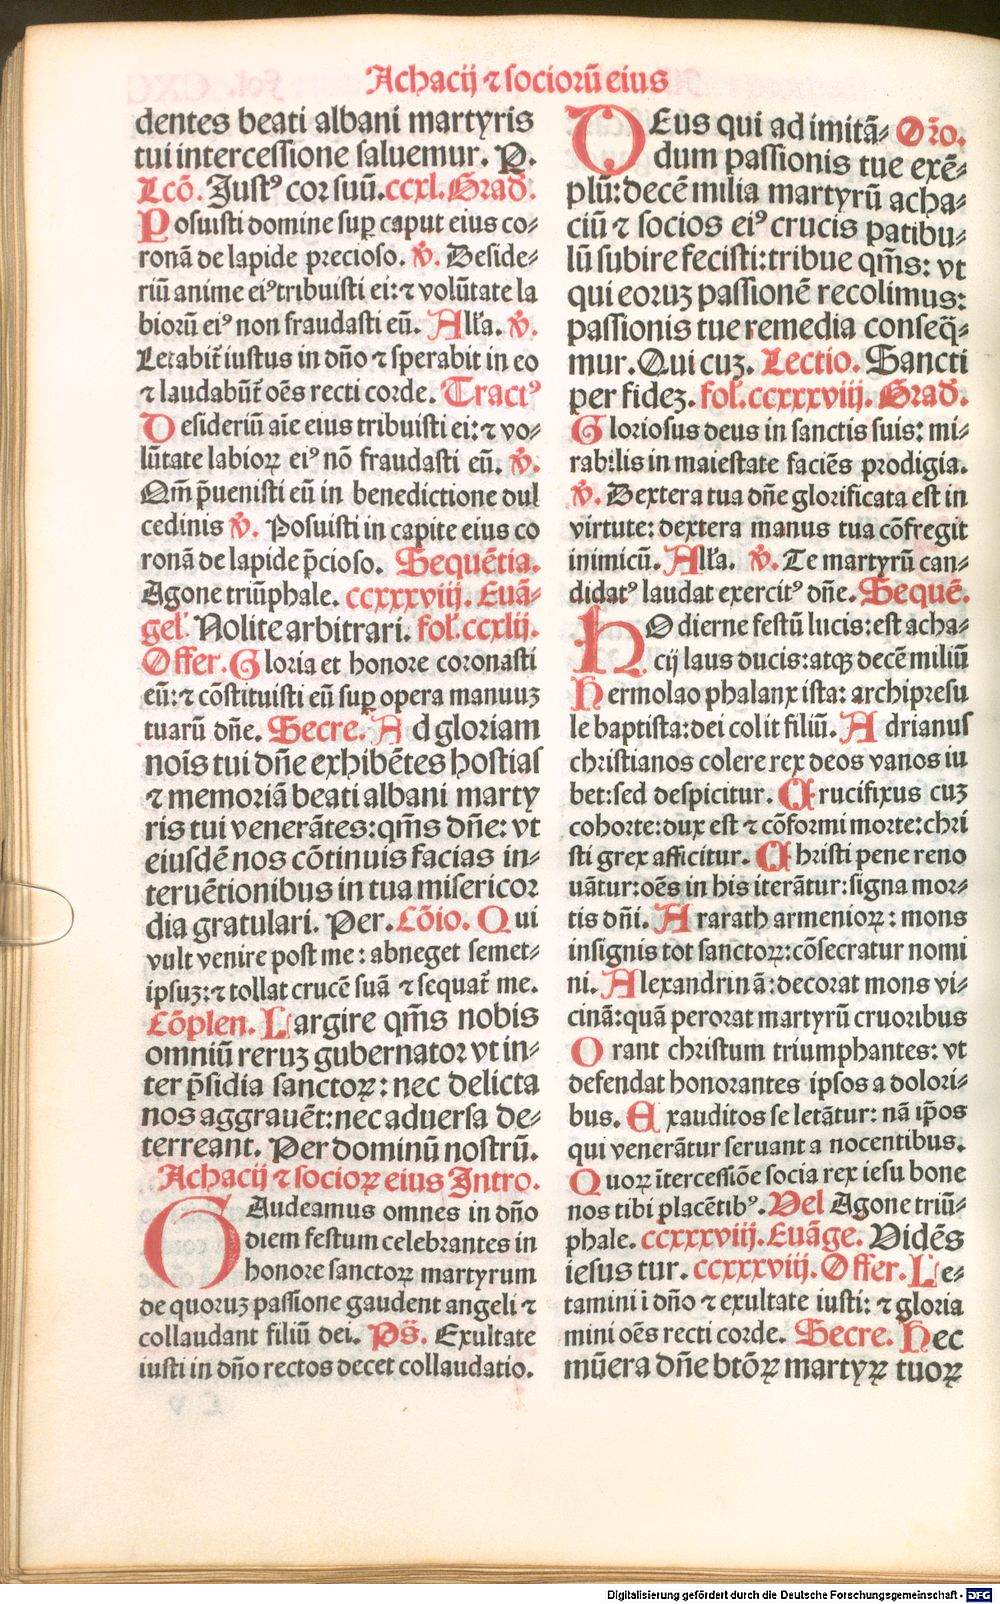 Achacij ⁊ sociorū eius
dentes beati albani martyris
tui intercessione saluemur. P.
Lcō. Justꝰ cor suū. ccxl. Grad̄.
Posuisti domine sup̱ caput eius co-
ronā de lapide precioso. v̄. Deside-
riū anime eiꝰ tribuisti ei: ⁊ volūtate la
biorū eiꝰ non fraudasti eū. All'a. v̄.
Letabit̄ iustus in dn̄o ⁊ sperabit in eo
⁊ laudabūt̄ oēs recti corde. Tractꝰ
Desideriū aīe eius tribuisti ei: ⁊ vo-
lūtate labioꝝ eiꝰ nō fraudasti eū. v̄.
Qm̄ p̄uenisti eū in benedictione dul
cedinis v̄. Posuisti in capite eius co
ronā de lapide p̄cioso. Sequētia.
Agone triūphale. ccxxxviij. Euā-
gel'. Nolite arbitrari. fol. ccxlij.
Offer. Gloria et honore coronasti
eū: ⁊ cōstituisti eū sup̱ opera manuuꝫ
tuarū dn̄e. Secre. Ad gloriam
noīs tui dn̄e exhibētes hostias
⁊ memoriā beati albani marty
ris tui venerātes: qm̄s dn̄e: vt
eiusdē nos cōtinuis facias in-
teruētionibus in tua misericor
dia gratulari. Per. Cōio. Qui
vult venire post me: abneget semet-
ipsuꝫ: ⁊ tollat crucē suā ⁊ sequat̄ me.
Cōplen. Largire qm̄s nobis
omniū reruꝫ gubernator vt in-
ter p̄sidia sanctoꝝ: nec delicta
nos aggrauēt: nec aduersa de-
terreant. Per dominū nostrū.
Achacij ⁊ socioꝝ eius Intro.
GAudeamus omnes in dn̄o
diem festum celebrantes in
honore sanctoꝝ martyrum
de quoruꝫ passione gaudent angeli ⁊
collaudant filiū dei. Ps̄. Exultate
iusti in dn̄o rectos decet collaudatio.
DEus qui ad imitā- Or̄o.
dum passionis tue exē-
plū: decē milia martyrū acha-
ciū ⁊ socios eiꝰ crucis patibu-
lū subire fecisti: tribue qm̄s: vt
qui eoruꝫ passionē recolimus:
passionis tue remedia conseq̄-
mur. Qui cuꝫ. Lectio. Sancti
per fideꝫ. fol. ccxxxviij. Grad̄.
Gloriosus deus in sanctis suis: mi-
rabilis in maiestate faciēs prodigia.
v̄. Dextera tua dn̄e glorificata est in
virtute: dextera manus tua cōfregit
inimicū. All'a. v̄. Te martyrū can-
didatꝰ laudat exercitꝰ dn̄e. Sequē.
HOdierne festū lucis: est acha-
cij laus ducis: atqꝫ decē miliū
Hermolao phalanx ista: archipresu
le baptista: dei colit filiū. Adrianus
christianos colere rex deos vanos iu
bet: sed despicitur. Crucifixus cuꝫ
cohorte: dux est ⁊ cōformi morte: chri
sti grex afficitur. Christi pene reno
uātur: oēs in his iterātur: signa mor-
tis dn̄i. Ararath armenioꝝ: mons
insignis tot sanctoꝝ: cōsecratur nomi
ni. Alexandrinā: decorat mons vi-
cinā: quā perorat martyrū cruoribus
Orant christum triumphantes: vt
defendat honorantes ipsos a dolori-
bus. Exauditos se letātur: nā ip̄os
qui venerātur seruant a nocentibus.
Quoꝝ ītercessiōe socia rex iesu bone
nos tibi placētibꝰ. Vel Agone triū-
phale. ccxxxviij. Euāge. Vidēs
iesus tur. ccxxxviij. Offer. Le-
tamini ī dn̄o ⁊ exultate iusti: ⁊ gloria
mini oēs recti corde. Secre. Hec
mūera dn̄e btōꝝ martyꝝ tuoꝝ
Digitalisierung gefördert durch die Deutsche Forschungsgemeinschaft - DFG